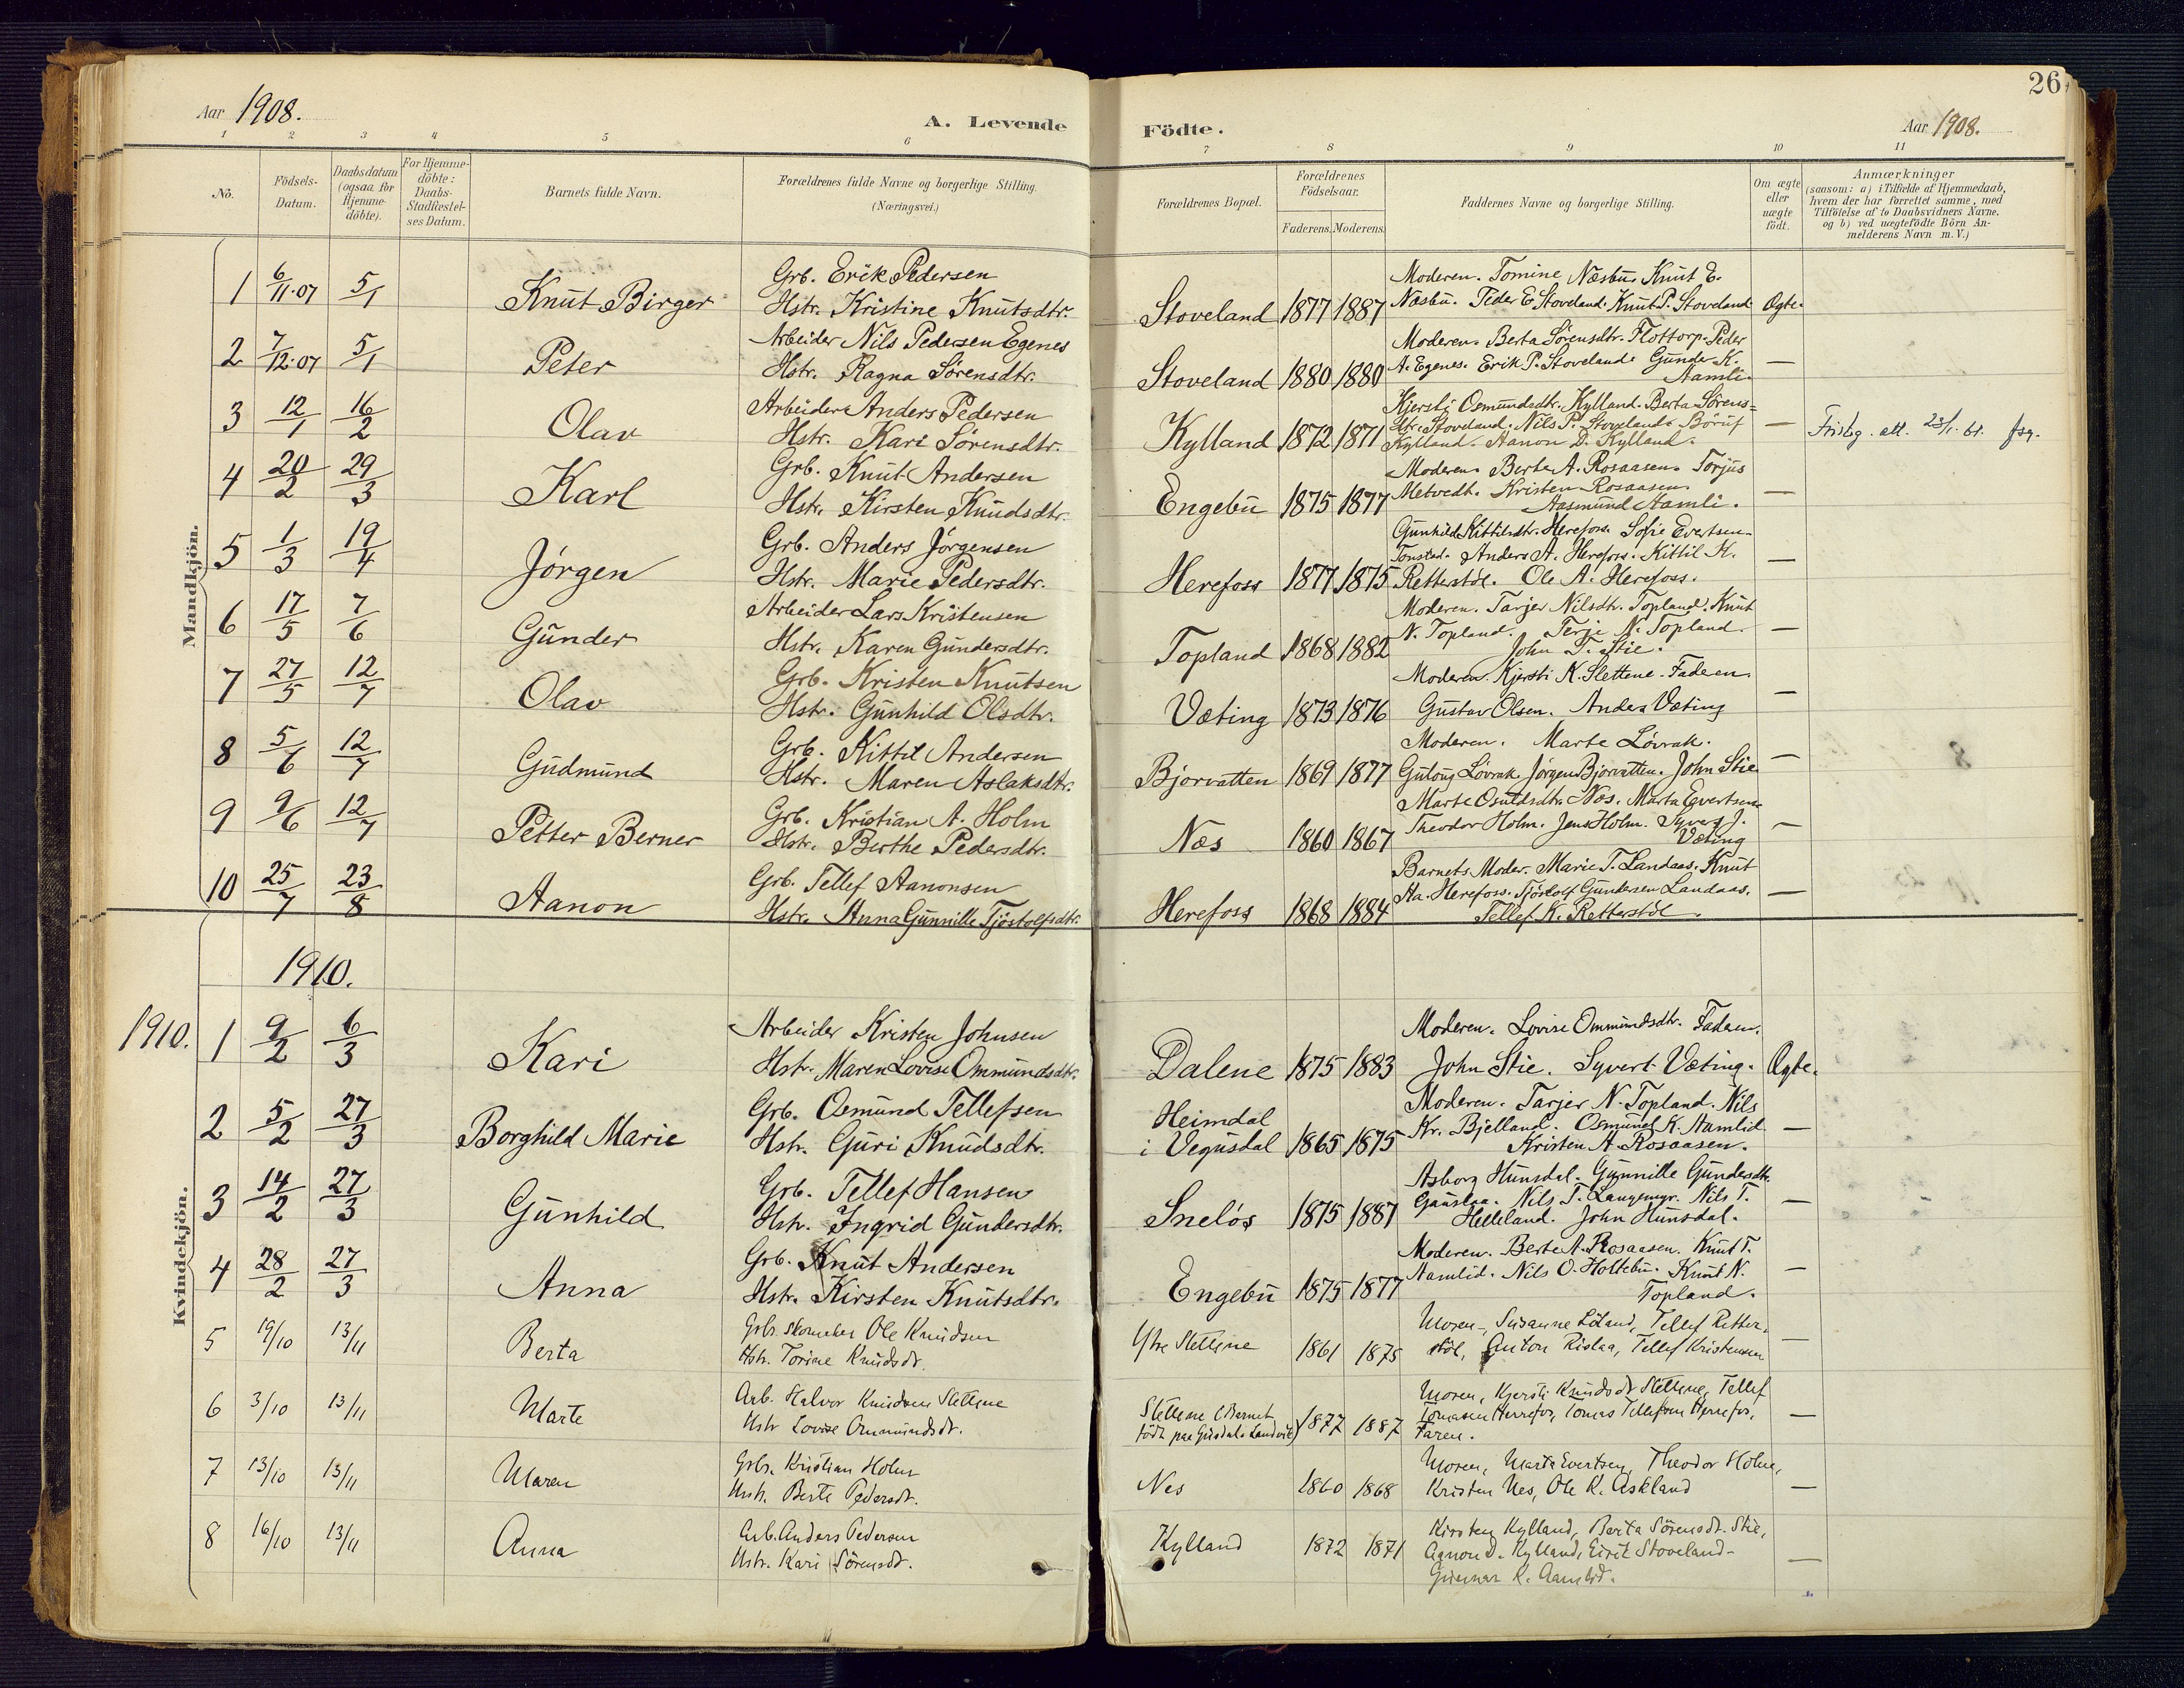 26
Aar 1908.
A. Levende Födte.
Aar 1908.
1 2 3 4 5 6 7 8 9 10 11
Nö.
Födsels-Datum.
Daabsdatum (ogsaa for Hjemme-döbte).
For Hjemme-döbte: Daabs-Stadfæstel-ses Datum.
Barnets fulde Navn.
Forældrenes fulde Navne og borgerlige Stilling. (Næringsvei.)
Forældrenes Bopæl.
Forældrenes Födselsaar.
Faderens. Moderens.
Faddernes Navne og borgerlige Stilling.
Om ægte eller uægte födt.
Anmærkninger
(saasom: a) i Tilfælde af Hjemmedaab,
hvem der har forrettet samme, med
Tilföielse af to Daabsvidners Navne.
og b) ved uægtefödte Börn An-
melderens Navn m. V.)
Mandkjön.
1 6/11-07 5/1 Knut Birger Grb. Erik Pedersen
Hstr. Kristine Knutsdtr. Stoveland 1877 1887 Moderen. Tomine Næsbu. Knut E.
Næsbu. Peder E. Stoveland. Knut P. Stoveland. Ægte.
2 7/12-07 5/1 Peter Arbeider Nils Pedersen Egenes
Hstr. Ragna Sörensdtr. Stoveland 1880 1880 Moderen. Berta Sörensdtr. Flottorp. Peder
A. Egenes. Erik P. Stoveland. Gunder K.
Aamli. —
3 12/1 16/2 Olav Arbeider Anders Pedersen
Hstr. Kari Sörensdtr. Kylland 1872 1871 Kjersti Osmundsdtr. Kylland. Berta Sörens=
dtr. Stoveland. Nils P. Stoveland.
Kylland. Aanon D. Kylland. — att. 23/1. 61.
4 20/2 29/3 Karl Grb. Knut Andersen
Hstr. Kirsten Knudsdtr. Engebu 1875 1877 Moderen. Berte A. Rosaasen. Torjus
Metvedt. Kristen Rosaasen.
Aasmund Aamli. —
5 1/3 19/4 Jörgen Grb. Anders Jörgensen
Hstr. Marie Pedersdtr. Herefoss 1877 1875 Gunhild Kittilsdtr. Herefoss. Sofie Evertsen
Tonstad. Anders A. Herefoss. Kittil K.
Retterstöl. Ole A. Herefoss. —
6 17/5 7/6 Gunder Arbeider Lars Kristensen
Hstr. Karen Gundersdtr. Topland 1868 1882 Moderen. Tarjer Nilsdtr. Topland. Knut
N. Topland. Terje N. Topland.
John T. Stie. —
7 27/5 12/7 Olav Grb. Kristen Knutsen
Hstr. Gunhild Olsdtr. Væting 1873 1876 Moderen. Kjersti K. Slettene. Faderen.
Gustav Olsen. Anders Væting —
8 5/6 12/7 Gudmund Grb. Kittil Andersen
Hstr. Maren Aslaksdtr. Bjorvatten 1869 1877 Moderen. Marte Lövrak.
Gutoug Lövrak. Jörgen Bjorvatten. John Stie —
9 9/6 12/7 Petter Berner Grb. Kristian A. Holm
Hstr. Berthe Pedersdtr. Næs 1860 1867 Marte Osuldsdtr. Næs. Marta Evertsen.
Theodor Holm. Jens Holm. Syvert J.
Væting —
10 25/7 23/8 Aanon Grb. Tellef Aanonsen
Hstr. Anna Gunnille Tjöstolfsdtr. Herefoss 1868 1884 Barnets Moder. Marie T. Landaas. Knut
Aa. Herefoss. Tjöstolf Gundersen Landaas.
Tellef K. Retterstöl. —
1910.
1910.
Kvindekjön.
1 9/2 6/3 Kari Arbeider Kristen Johnsen
Hstr. Maren Lovise Ommundsdtr. Dalene 1875 1883 Moderen. Lovise Ommundsdtr. Faderen.
John Stie. Syvert Væting. Ægte.
2 5/2 27/3 Borghild Marie Grb. Osmund Tellefsen
Hstr. Guri Knudsdtr. Heimdal
i Vegusdal 1865 1875 Moderen. Tarjer N. Topland. Nils
Kr. Bjelland. Osmund K. Aamlid
Kristen A. Rosaasen. —
3 14/2 27/3 Gunhild Grb. Tellef Hansen
Hstr. Ingrid Gundersdtr. Snelös 1875 1887 Asborg Hunsdal. Gunnille Gundersdtr.
Gauslaa. Nils T. Langemyr. Nils T.
Helleland. John Hunsdal. —
4 28/2 27/3 Anna Grb. Knut Andersen
Hstr. Kirsten Knutsdtr. Engebu 1875 1877 Moderen. Berte A. Rosaasen. Knut T.
Aamlid. Nils O. Holtebu. Knut N.
Topland. —
5 19/10 13/11 Berta Grbr. skomaker Ole Knudsen
Hstr. Torine Knudsdt. Ytre Slettene 1861 1875 Moren, Susanne Löland, Tellef Retter-
stöl, Anton Rislaa, Tellef Kristensen —
6 3/10 13/11 Marte Arb. Halvor Knudsen Slettene
Hstr Lovise Ommundsdt. Slettene (Barnet
födt paa Landvik) 1877 1887 Moren, Kjersti Knudsdt Slettene, Tellef
Tomasen Herrefos, Tomas Tellefsen Herrefos,
Faren. —
7 13/10 13/11 Maren Grbr. Kristian Holm
Hstr. Berte Pedersdt. Nes 1860 1868 Moren, Marte Evertsen, Theodor Holm,
Kristen Nes, Ole K. Askland —
8 16/10 13/11 Anna Arb. Anders Pedersen
Hstr. Kari Sörensdt. Kylland 1872 1871 Kirsten Kylland, Berta Sörensdt. Stie,
Aanon D. Kylland, Eirik Stoveland-
Gunnar K. Aamlid. —